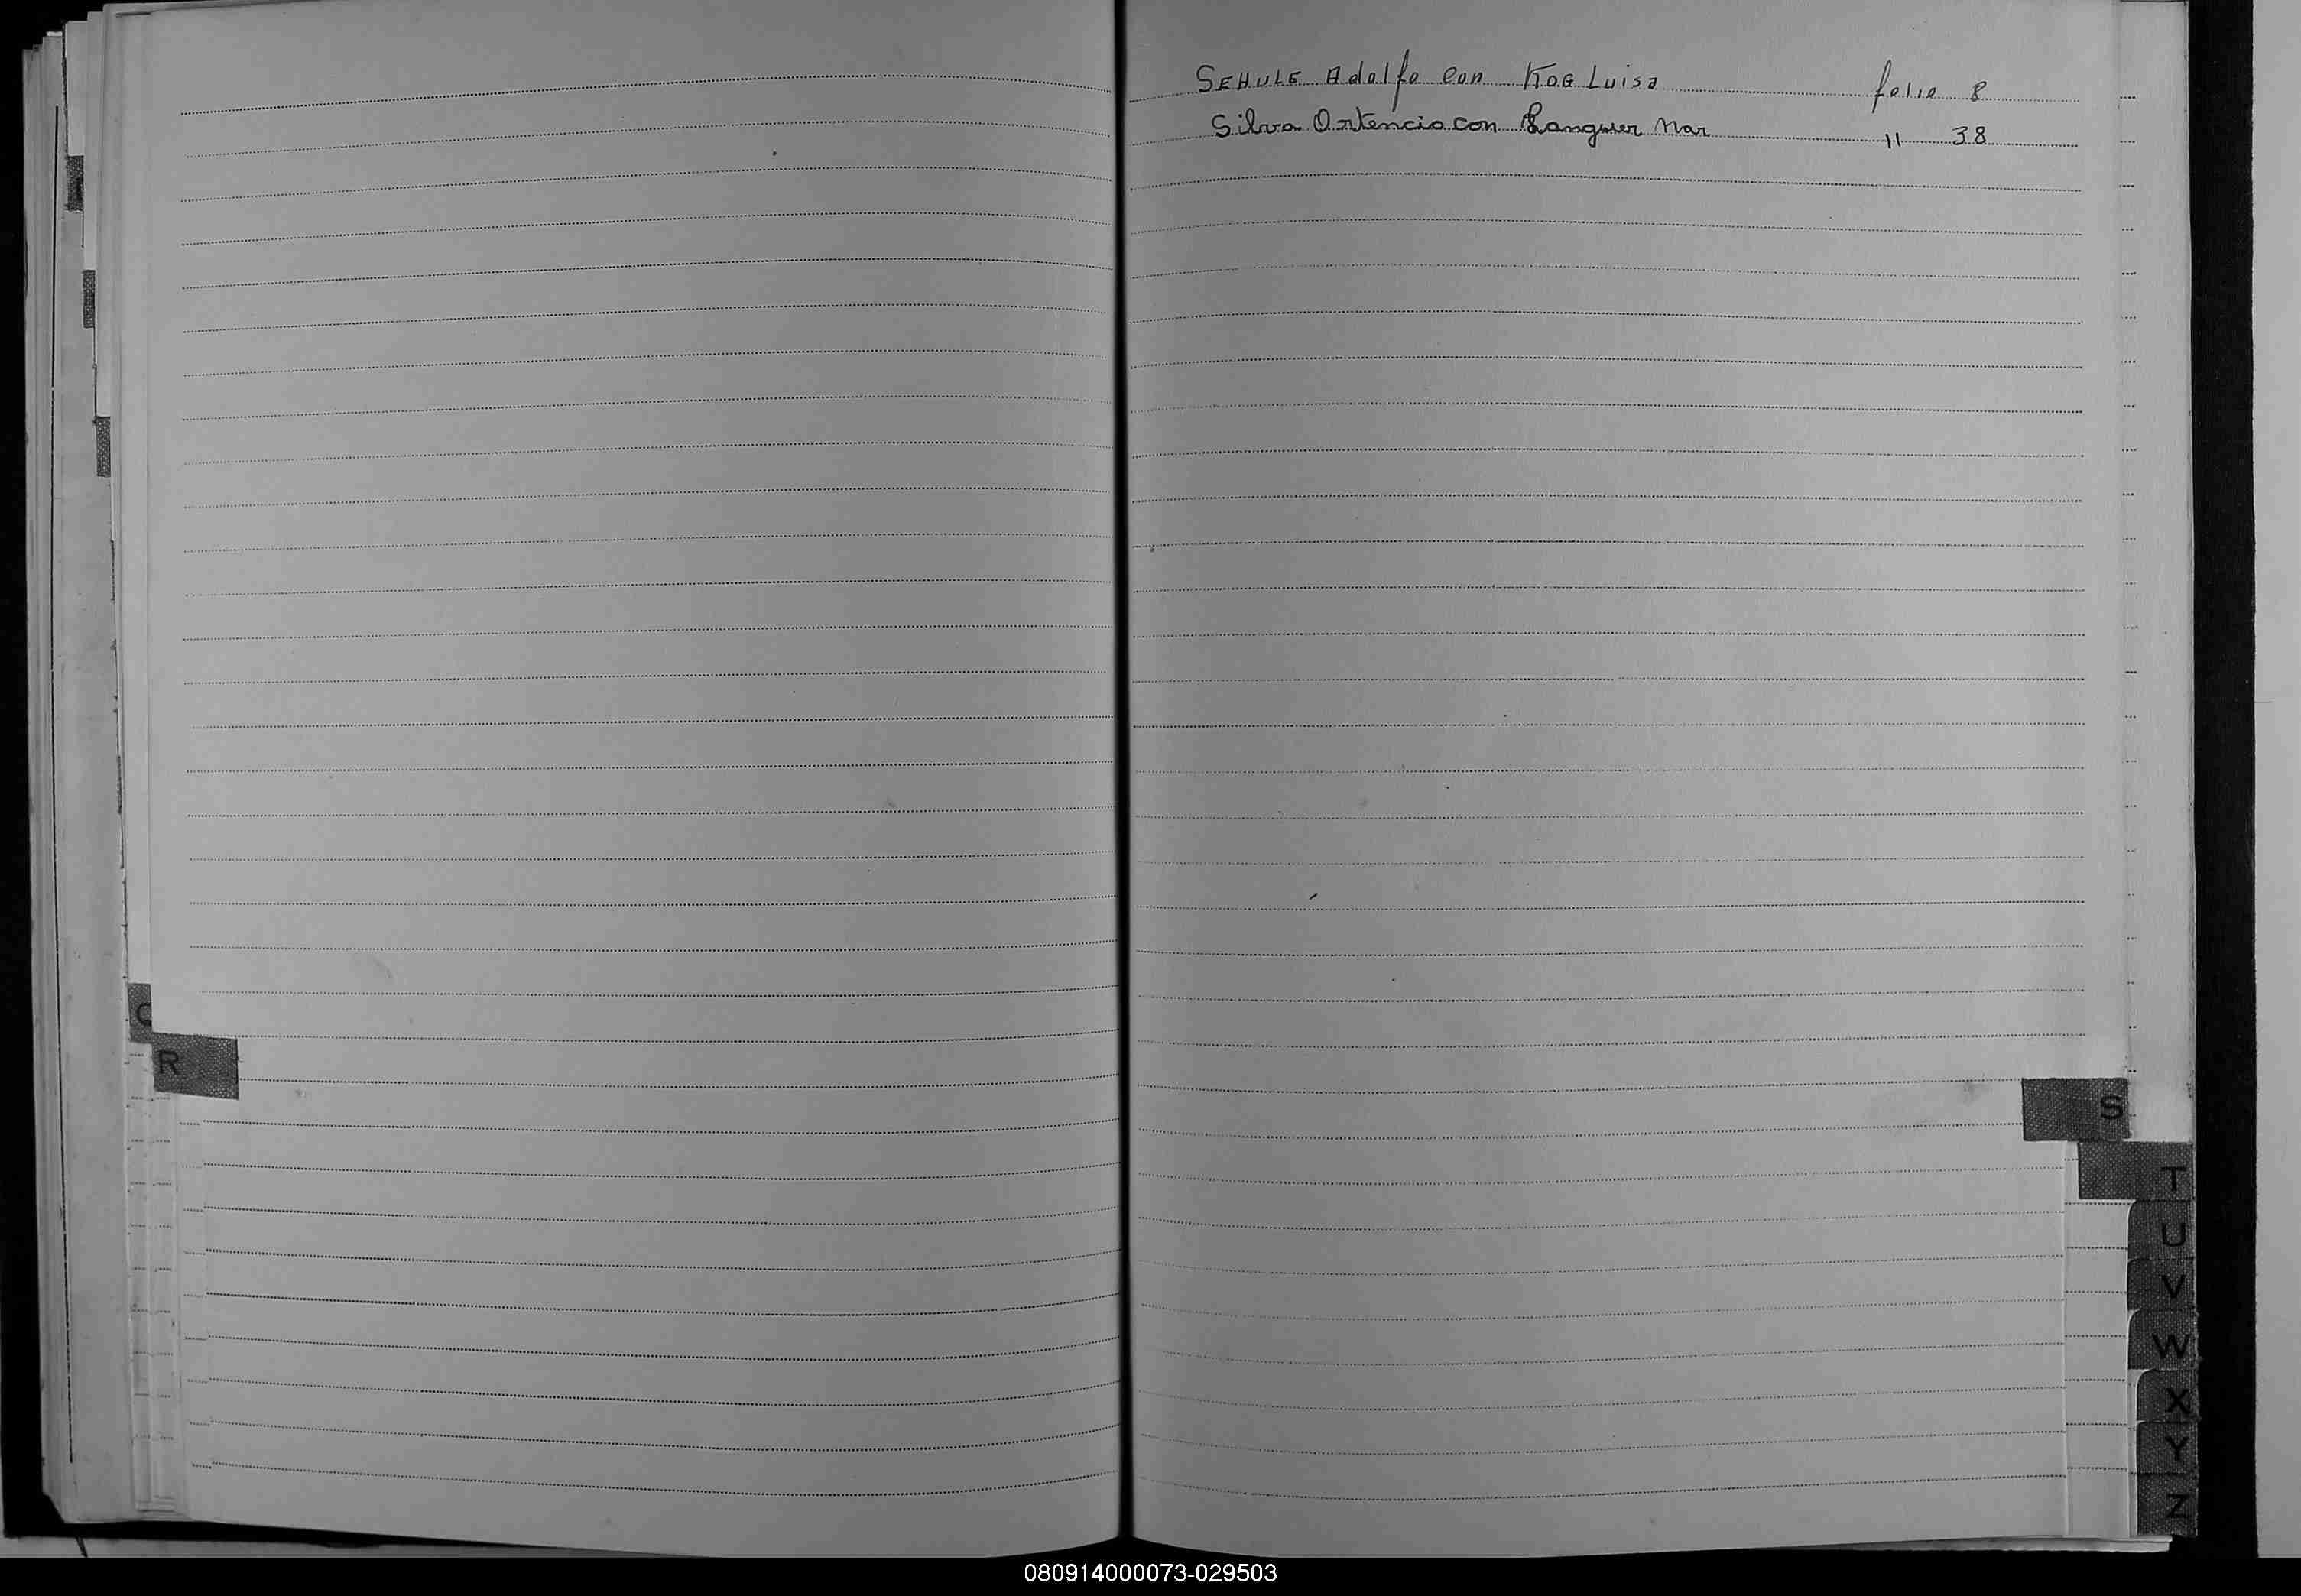 SEHULE Adolfo con KOG Luisa folio 8
Silva Ortencio con Sanguier Mar " 38
Q
R
S
T
U
V
W
X
Y
Z
080914000073-029503